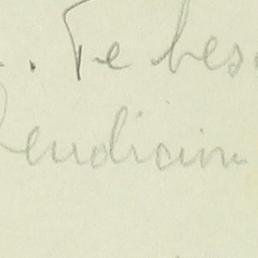 . Te bes
endicion